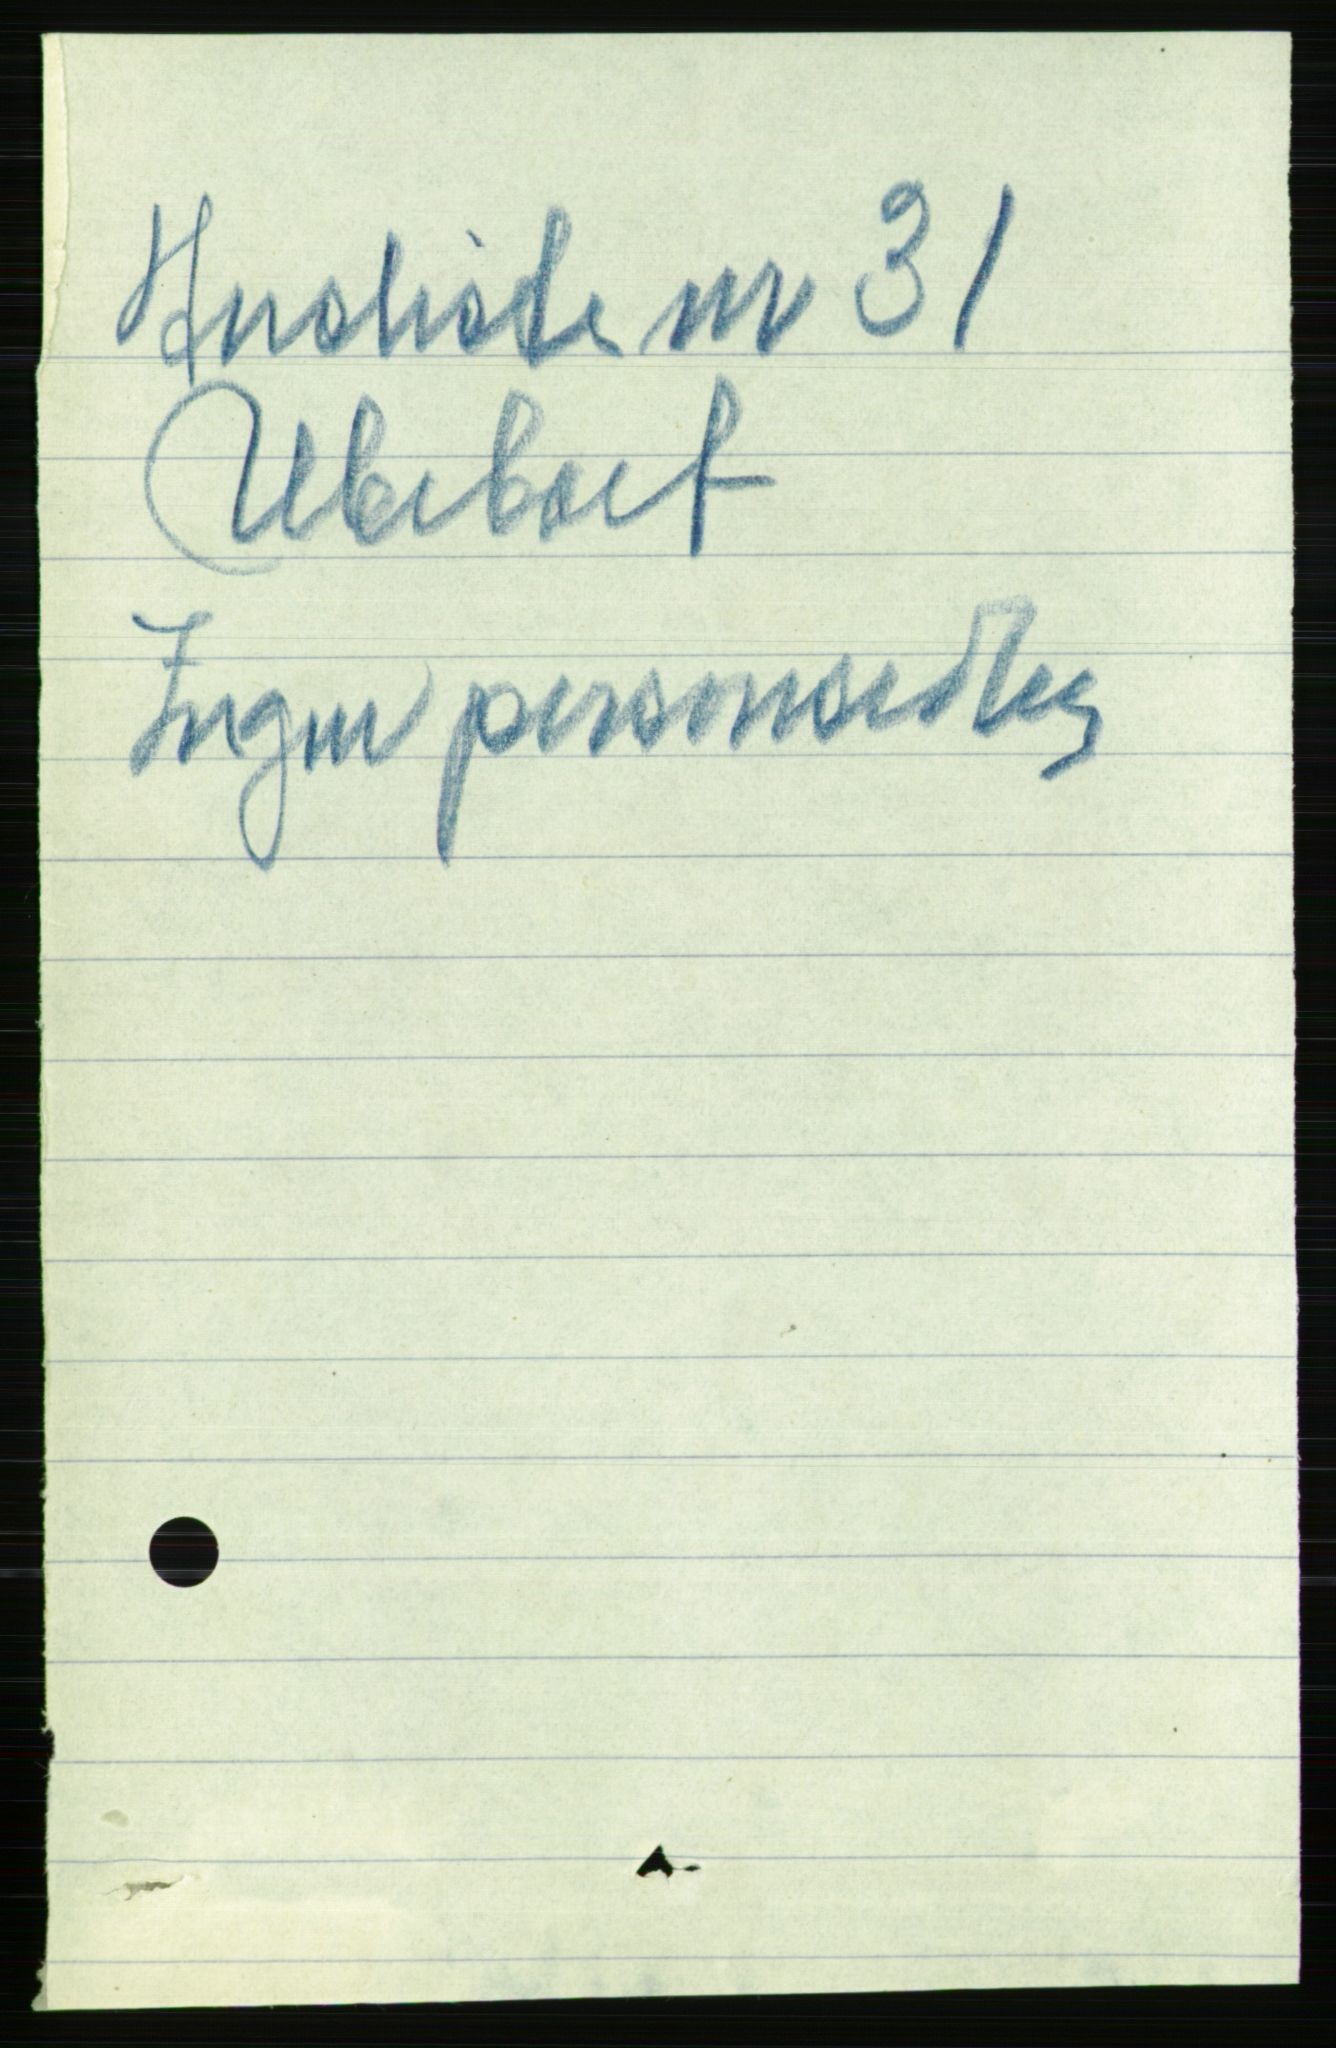 Husliste nr 31
Ubeboet
Ingen personsedler